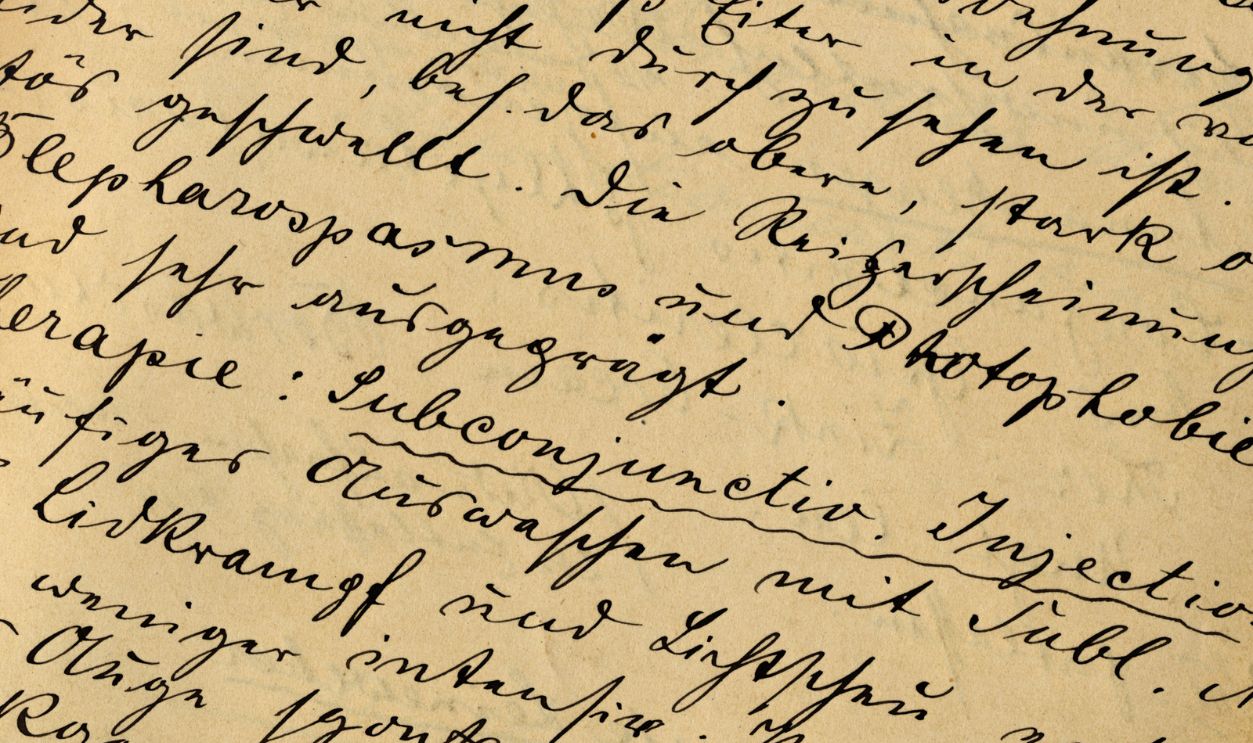 nicht durch Eiter in der
sind, bes. das obere, zu sehen ist.
tös geschwellt. Die Reizerscheinung
Blepharospasmus und Photophobie
und sehr ausgeprägt.
Therapie: Subconjunctiv. Injectio
häufiges Auswaschen mit Subl.
Lidkrampf und Lichtscheu
weniger intensiv.
Auge spont